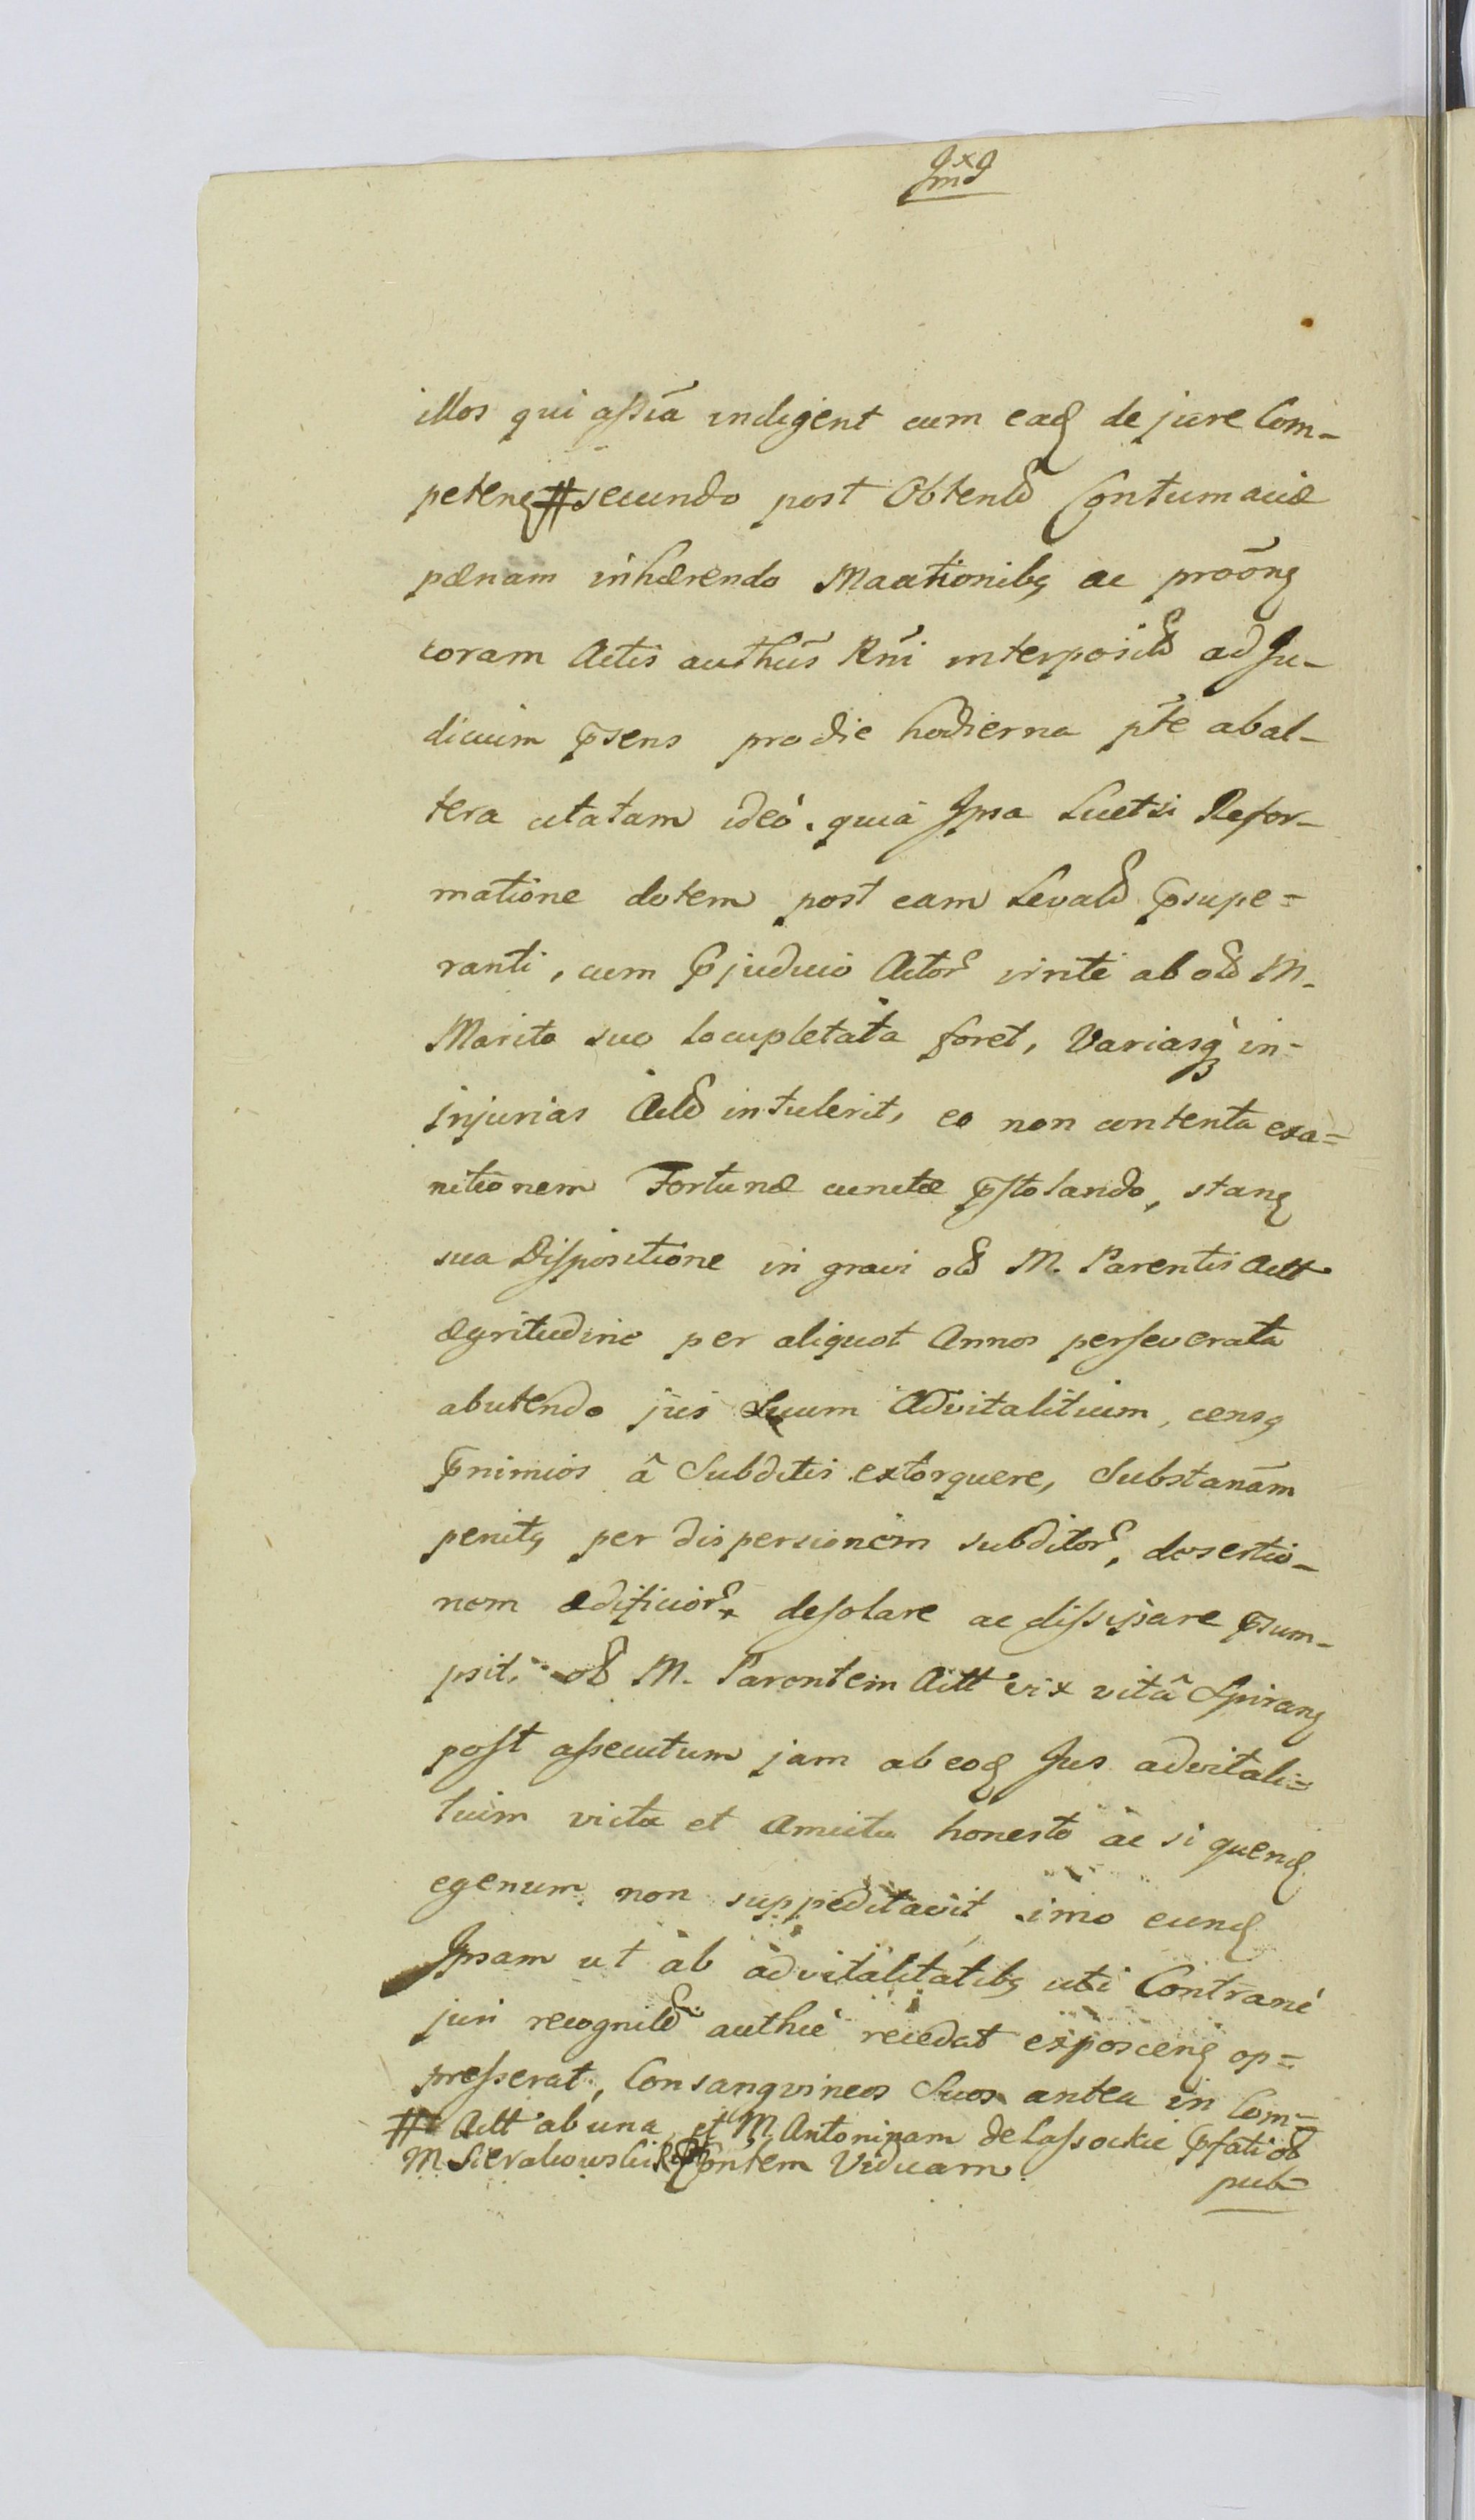 illos qui assia indigent cum ead de jure Com-
peten # secundo post Obtent Contumaciæ
pænam inhærendo Mactionibq ac proong
coram Actis authcis Rni interposit ad Ju-
dicium psens pro die hodierna pte ab al-
tera citatam ideo quia Ipsa Luct si Refor-
matione dotem post eam Levat psupe=
ranti, cum Pjudicio Actor inite ab ol M.
Marito suo locupletata foret, Variasq in-
injurias Act intulerit, eo non contenta exa=
nitionem Fortunæ cunctæ pstolando, stang
sua Dispositione in gravi ol M. Parentis Actt
ægritudine per aliquot Annos perseverata
abutendo jus Suum Advitalitium, censq
pnimios â Subditis extorquere, Substanam
penitq per dispersionem subditor, desertio-
nem ædificior desolare ac dissipare psum-
psit, ol M. Parentem Actt vix vitâ Spirang
post assecutum jam ab eod Jus advitali=
tium victu et Amictu honesto ac si quend
egenum non suppeditavit, imo eund
Ipsam ut ab advitalitatibq uti Contrarie
juri recognit authce recedat exposceng op=
presserat, Consangvineos Suos antea in Com=
# Actt ab una et M. Antoninam de Lassockie Pfati ol
M. Sierakowski Contem Viduam
pub=